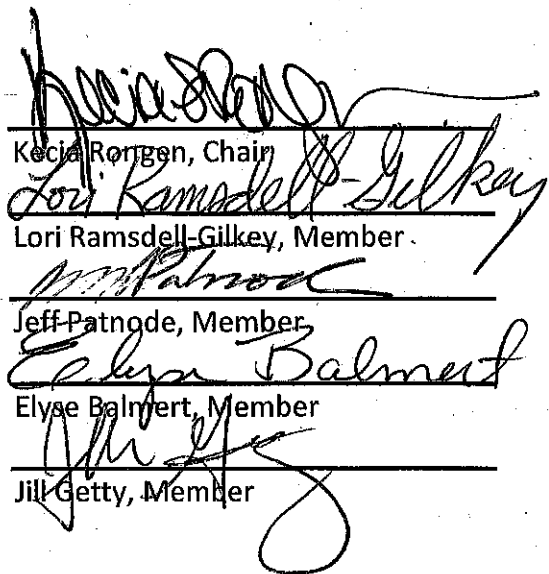 Kecia Rongen
Kecia Rongen, Chair
Lori Ramsdell-Gilkey
Lori Ramsdell-Gilkey, Member
Patnode
Jeff Patnode, Member
Elyse Balmert
Elyse Balmert, Member
Jill Getty, Member